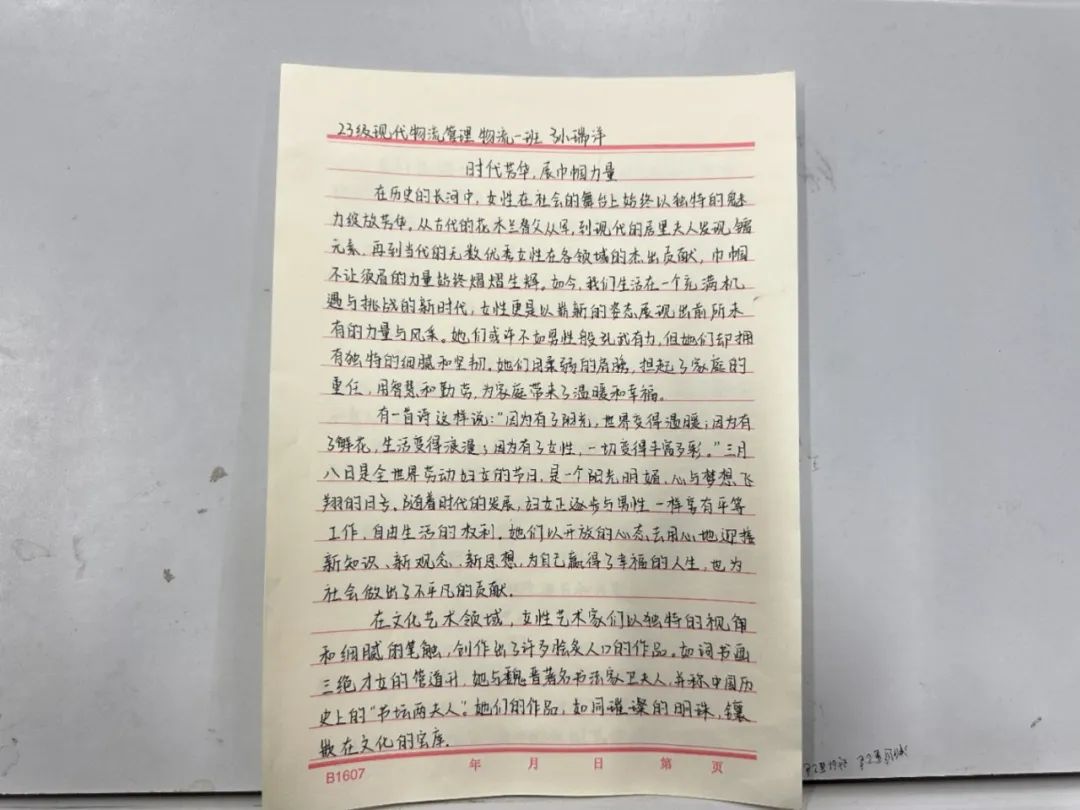 23级现代物流管理 物流一班 孙瑞洋
时代芳华,展巾帼力量
在历史的长河中,女性在社会的舞台上始终以独特的魅
力绽放芳华。从古代的花木兰替父从军,到现代的居里夫人发现镭
元素,再到当代的无数优秀女性在各领域的杰出贡献,巾帼
不让须眉的力量始终熠熠生辉。如今,我们生活在一个充满机
遇与挑战的新时代,女性更是以崭新的姿态展现出前所未
有的力量与风采。她们或许不如男性般孔武有力,但她们却拥
有独特的细腻和坚韧。她们用柔弱的肩膀,担起了家庭的
重任,用智慧和勤劳,为家庭带来了温暖和幸福。
有一首诗这样说:“因为有了阳光,世界变得温暖;因为有
了鲜花,生活变得浪漫;因为有了女性,一切变得丰富多彩。”三月
八日是全世界劳动妇女的节日,是一个阳光明媚,心与梦想飞
翔的日号。随着时代的发展,妇女正逐步与男性一样享有平等
工作,自由生活的权利。她们以开放的心态去用心地迎接
新知识、新观念、新思想,为自己赢得了幸福的人生,也为
社会做出了不平凡的贡献.
在文化艺术领域,女性艺术家们以独特的视角
和细腻的笔触,创作出了许多脍炙人口的作品。如词书画
三绝才女的管道升,她与魏晋著名书法家卫夫人,并称中国历
史上的“书坛两夫人”。她们的作品,如同璀璨的明珠,镶
嵌在文化的宝库.
B1607 年 月 日 第 页